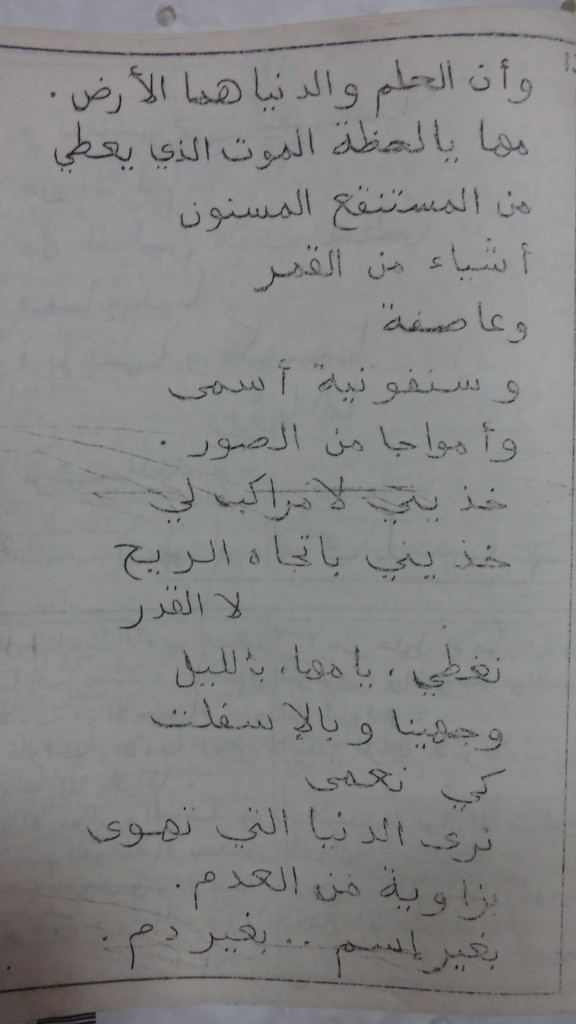 وأن الحلم والدنيا هما الأرض .
مها يا لحظة الموت الذي يعطي
من المستنقع المسنون
أشياء من القمر
وعاصفة
وسنفونية أسمى
وأمواجا من الصور .
خذيني لا مراكب لي
خذيني باتجاه الريح
لا القدر
نغطي ، يا مها ، بالليل
وجهينا وبالإسفلت
كي نعمى
نرى الدنيا التي تهوى
بزاوية من العدم .
بغير إسم .. بغير دم .